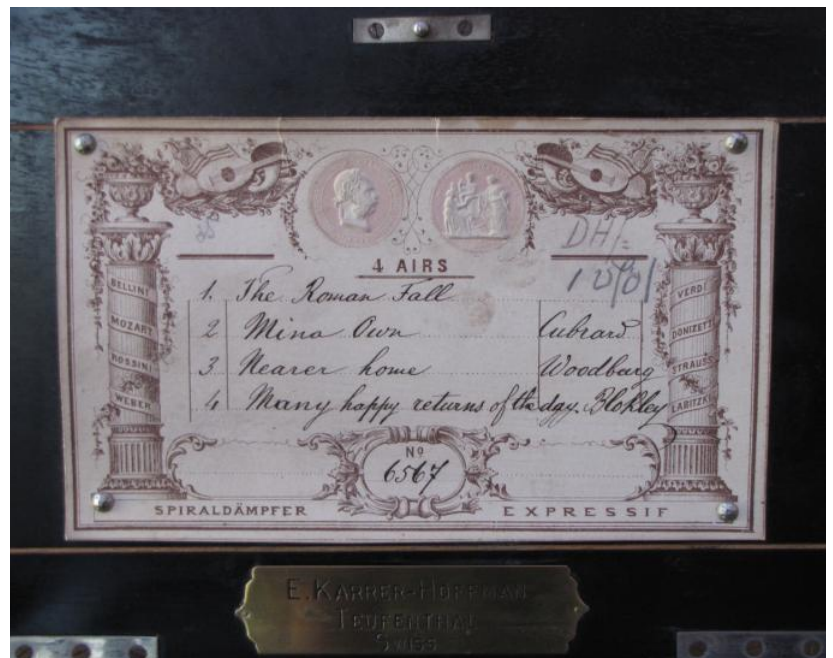 4 AIRS
DH/=
1. The Roman Fall
2 Mina Own Cubrard
3 Nearer home Woodburg
4 Many happy returns of the day. Blokley
BELLINI
MOZART
ROSSINI
WEBER
VERDI
DONIZETTI
STRAUSS
LABITZKI
No
6567
SPIRALDÄMPFER EXPRESSIF
E. KARRER-HOFFMAN
TEUFENTHAL
SWISS